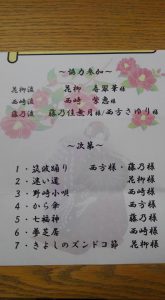 ～協力参加～
花柳流 花柳 寿翠華様
西崎流 西崎 紫恵様
藤乃流 藤乃佳無月様/西方さゆり様
～次第～
1・筑波踊り 西方様・藤乃様
2・迷い道 花柳様
3・野崎小唄 西崎様
4・から傘 西方様
5・七福神 藤乃様
6・夢芝居 西崎様
7・きよしのズンドコ節 花柳様